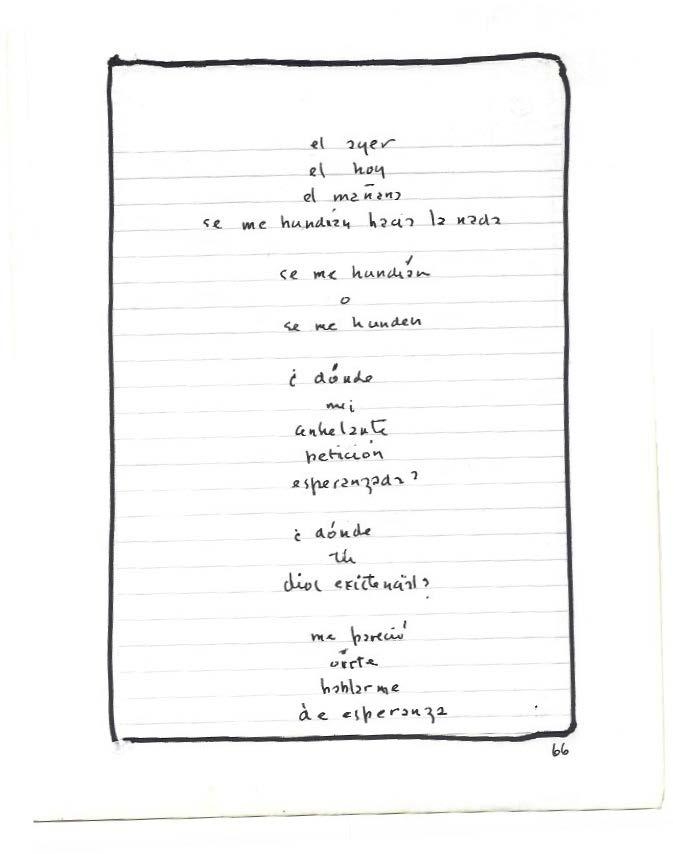 el ayer
el hoy
el mañana
se me hundían hacia la nada
se me hundían
o
se me hunden
¿dónde
mi
anhelante
petición
esperanzada?
¿dónde
tú
dios existencial?
me pareció
oírte
hablarme
de esperanza
66